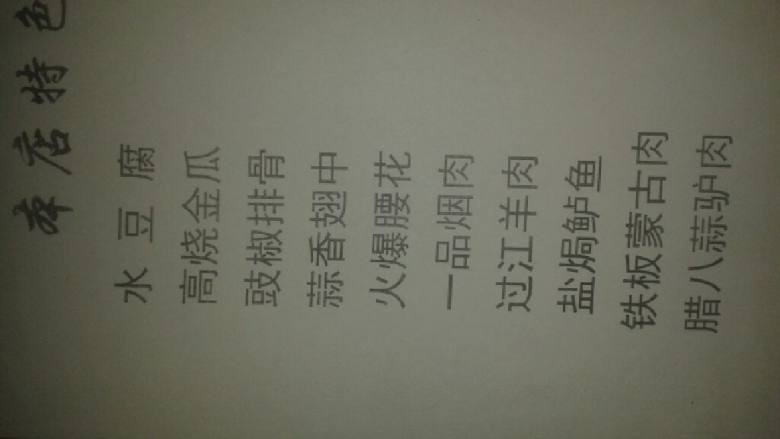 本店特色
水豆腐
高烧金瓜
豉椒排骨
蒜香翅中
火爆腰花
一品烟肉
过江羊肉
盐焗鲈鱼
铁板蒙古肉
腊八蒜驴肉